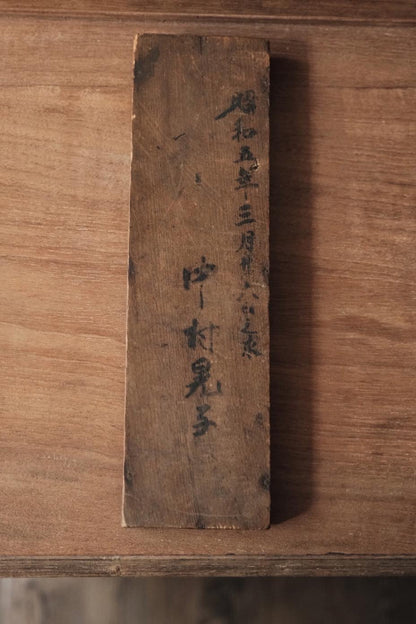 昭和五年三月廿八日之求
中村晃子